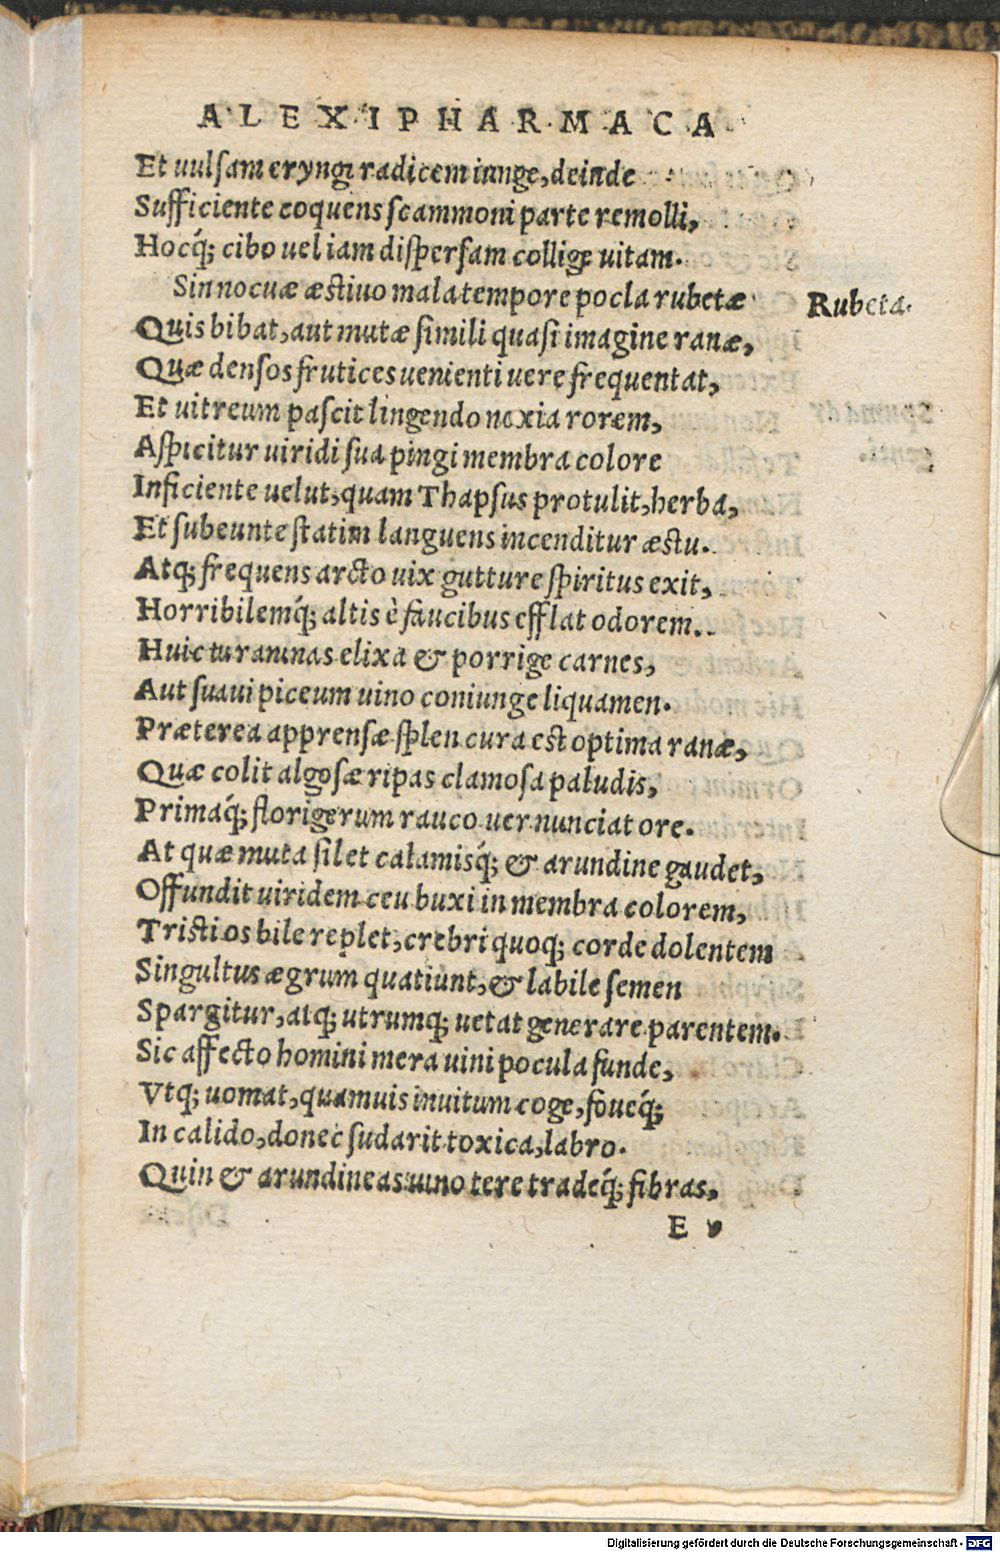 ALEXIPHARMACA
Et uulsam eryngi radicem iunge, deinde
Sufficiente coquens scammoni parte remolli,
Hocq́; cibo uel iam dispersam collige uitam.
Sin nocuæ æstiuo mala tempore pocla rubetæ
Rubeta.
Quis bibat, aut mutæ simili quasi imagine ranæ,
Quæ densos frutices uenienti uere frequentat,
Et uitreum pascit lingendo noxia rorem,
Aspicitur uiridi sua pingi membra colore
Inficiente uelut, quam Thapsus protulit, herba,
Et subeunte statim languens incenditur æstu.
Atq; frequens arcto uix gutture spiritus exit,
Horribilemq́; altis è faucibus efflat odorem.
Huic tu raninas elixa & porrige carnes,
Aut suaui piceum uino coniunge liquamen.
Præterea apprensæ splen cura est optima ranæ,
Quæ colit algosæ ripas clamosa paludis,
Primaq́; florigerum rauco uer nunciat ore.
At quæ muta silet calamisq́; & arundine gaudet,
Offundit uiridem ceu buxi in membra colorem,
Tristi os bile replet, crebri quoq; corde dolentem
Singultus ægrum quatiunt, & labile semen
Spargitur, atq; utrumq; uetat generare parentem.
Sic affecto homini mera uini pocula funde,
Vtq; uomat, quamuis inuitum coge, foueq́;
In calido, donec sudarit toxica, labro.
Quin & arundineas uino tere tradeq́; fibras,
E
Digitalisierung gefördert durch die Deutsche Forschungsgemeinschaft - DFG